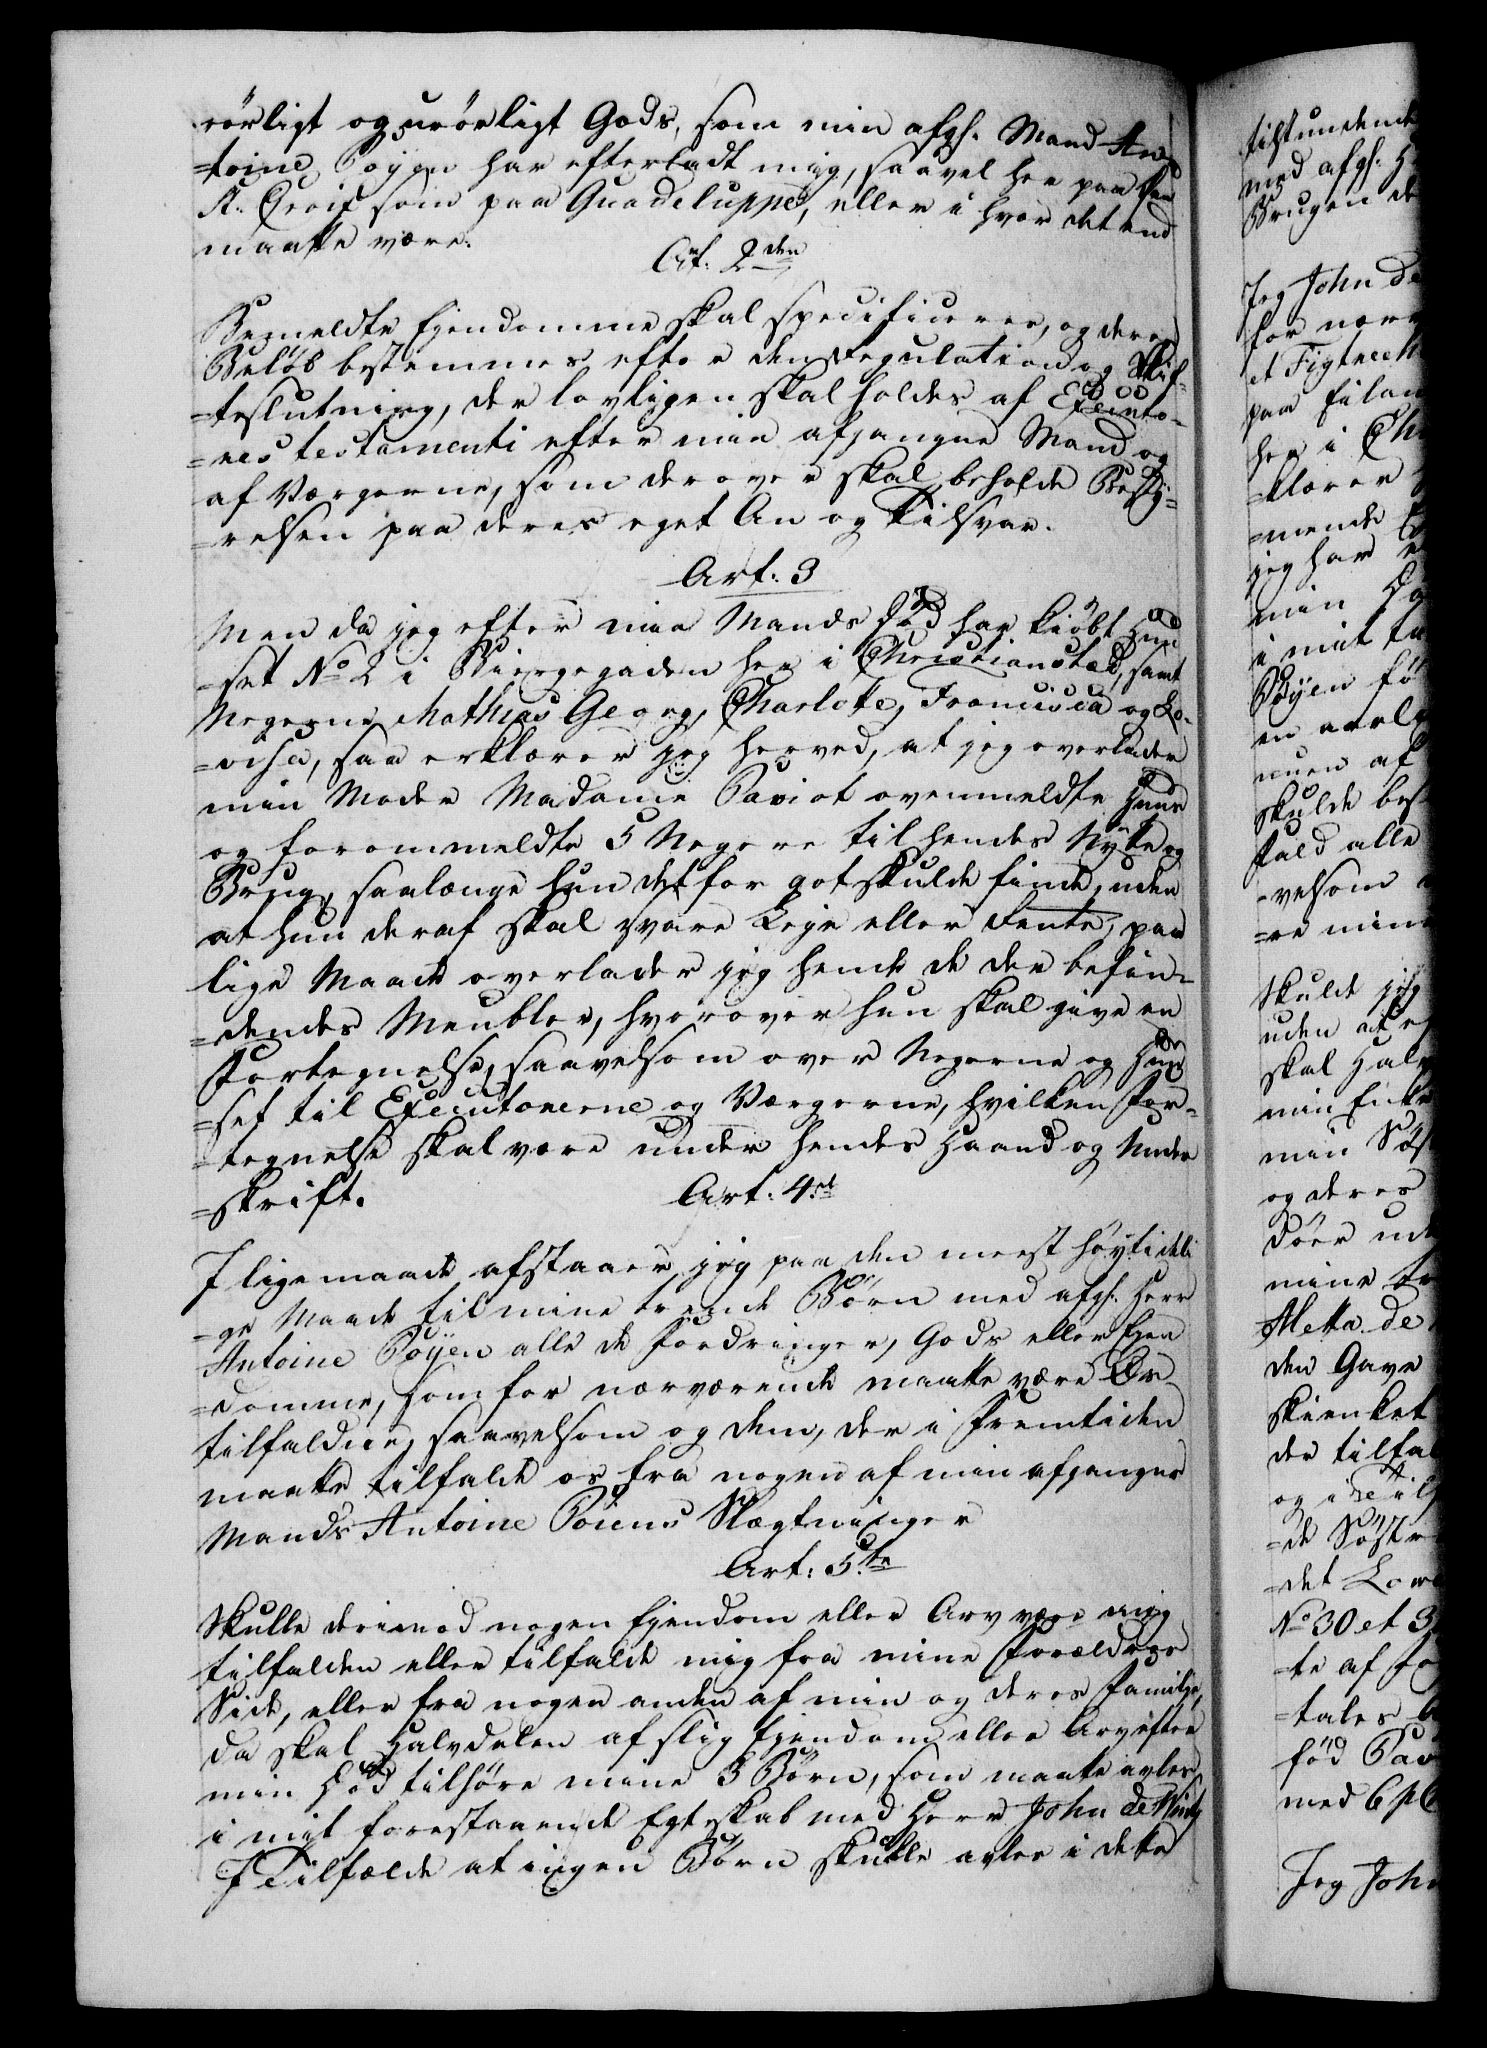 rörligt og urörligt Gods, som min afgh. Mand An-
=toine Poÿen har efterladt mig, saavel her paa
St. Croix som paa Guadeluppe, eller i hvor det end
maatte være.
Art. 2den
Bemeldte Ejendomme skal specificeres, og deres
Belöb bestemmes efter den Regulation og Skif-
=teslutning, der lovligen skal holdes af Executo-
=res testamenti efter min afgangne Mand og
af Værgerne, som derover skal beholde Besty-
=relsen paa deres eget An og Tilsvar.
Art: 3
Men da jeg efter min Mands Död har kiöbt Huu
=set No 2 i Biergegaden her i Christianstæd, samt
Negerne Mathias Georg, Charlotte, Francisca og Lo-
=visa, saa erklærer jeg herved, at jeg overlader
min Moder Madame Paviot ovenmeldte Huus
og forommeldte 5 Negere til hendes Nytte og
Brug, saalænge hun det for got skulde finde, uden
at hun deraf skal svare Leje eller Rente; paa
lige Maade overlader jeg hende de der befin-
=dendes Meubler, hvorover hun skal give en
Fortegnelse, saavelsom over Negerne og Huu
=set til Executorerne og Værgerne, hvilken For-
=tegnelse skal være under hendes Haand og Under
=skrift.
Art: 4de
I ligemaade afstaaer jeg paa den meest höytideli
=ge Maade til mine trende Börn med afgh. Herr
Antoine Poÿen alle de Fordringer, Gods eller Ejen
=domme, som for nærværende maatte være Os
tilfaldne, saavelsom og dem, der i Fremtiden
maatte tilfalde os fra nogen af min afgangne
Mands Antoine Poiens Slægtninger
Art: 5te
Skulle derimod nogen Ejendom eller Arv være mig
tilfalden eller tilfalde mig fra mine Forældres
Side, eller fra nogen anden af min og deres Familje,
da skal Halvdelen af slig Ejendom eller Arv efter
min Död tilhöre mine 3 Börn, som maatte avles
i mit forestaaende Egteskab med Herr John de Nully
I Tilfælde at ingen Börn skulle avles i dette
tilstundende
med afgh. H
Brugen de
Jeg John de
for nærv
et Figtree
paa
her i Ch
=klærer
=mende
jeg har
min
i mit
Poÿen fö
en aarl
af
skulde bes
Fald alle
=velsom
=re mine
Skulde jeg
uden at
skal Halv
min Enke
min Söst
og deres
döer ud
mine
Metta de
den Gave
skienket
der tilfal
og i
=de Söstr
=det Low
No 30 et 3
=te af
=tales
fød Pav
med 6 p C
Jeg John